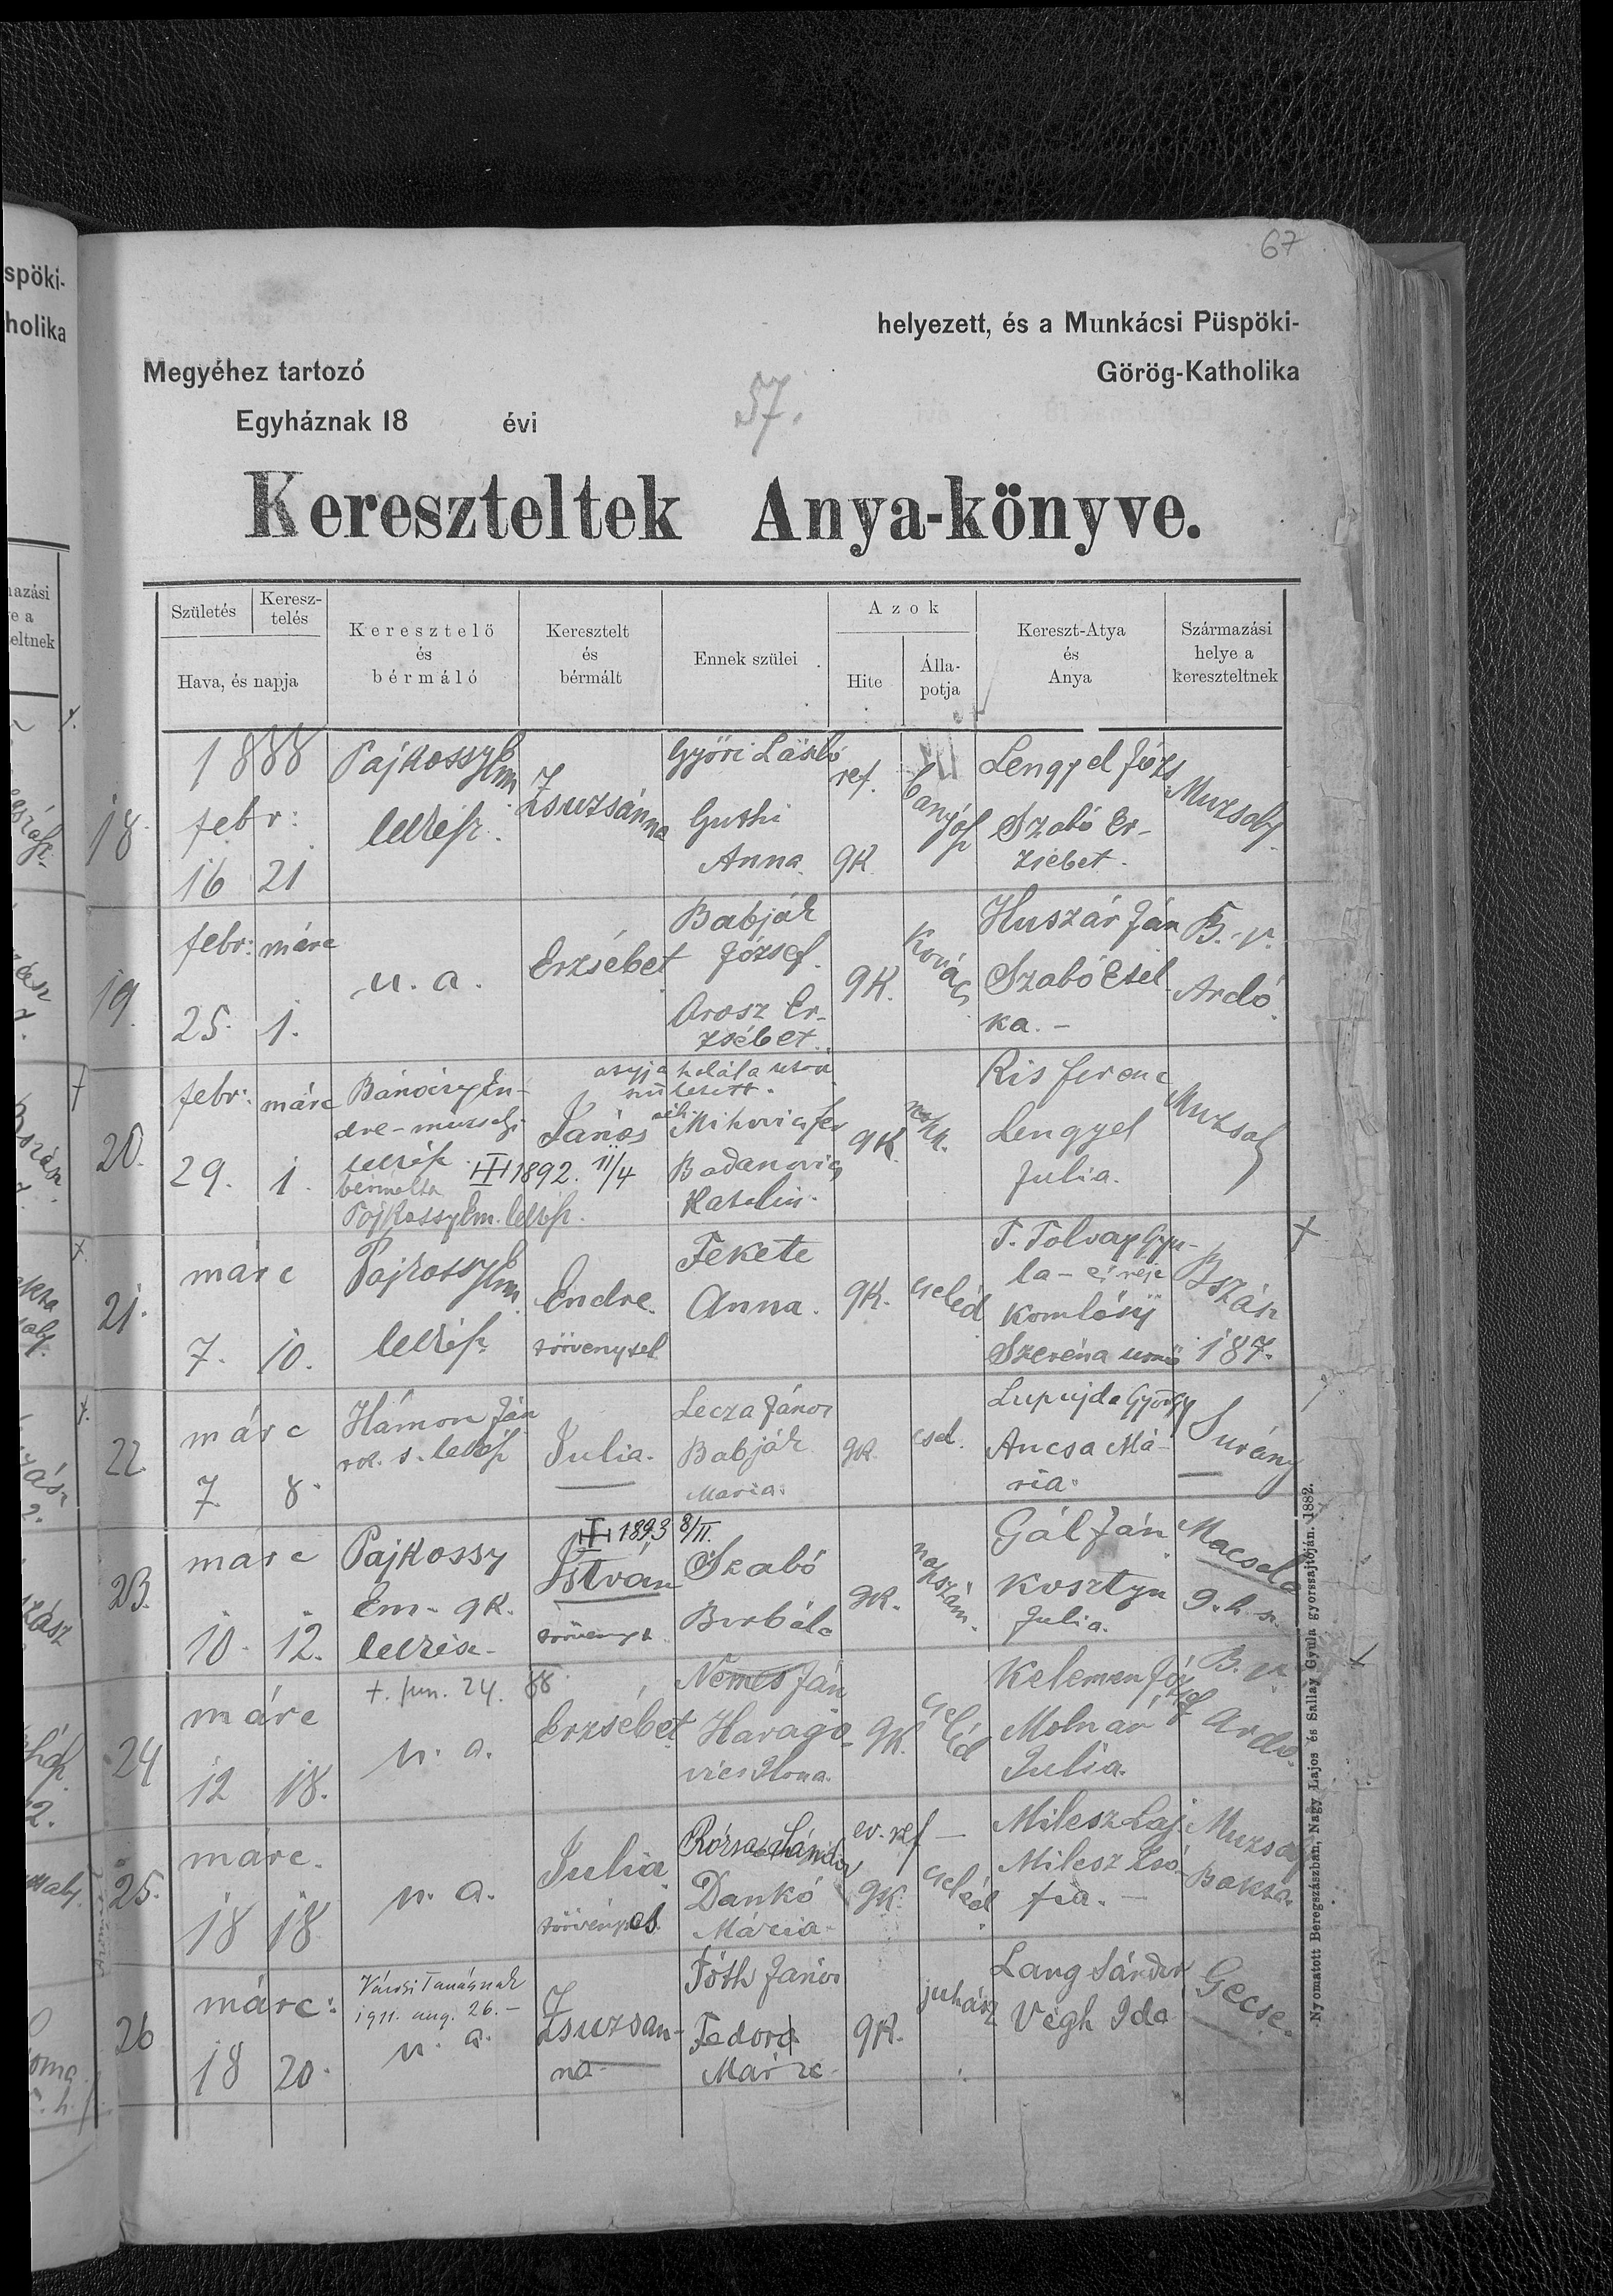 67
helyezett, és a Munkácsi Püspöki-
Megyéhez tartozó
Görög-Katholika
57.
Egyháznak 18 évi
Kereszteltek Anya-könyve.
Születés
Keresz-
telés
Hava, és napja
Keresztelő
és
bérmáló
Keresztelt
és
bérmált
Ennek szülei
Azok
Hite
Álla-
potja
Kereszt-Atya
és
Anya
Származási
helye a
kereszteltnek
18.
1888
febr:
16 21
Pajkossy Em.
lelkész.
Zsuzsánna
Győri László
Guthi
Anna.
ref.
gk.
Lengyel Józs.
Szabó Er-
zsebet.
Muzsaly
19.
febr: márc
25. 1.
u. a.
Erzsébet
Babják
József.
Orosz Er-
zsébet.
gk.
Kovács
Huszár Ján
Szabó Etel
ka. -
B. v.
Ardó.
20.
febr: márc
29. 1.
lelkész
bérmálta
Pajkossy Em. lelkész.
1892. 11/4
János
Katalin.
gk.
Kis Ferenc
Lengyel
Julia.
Muzsaly
21.
márc
7. 10.
Pajkossy Em.
lelkész
Endre.
Fekete
Anna.
gk.
cseléd
T. Tolvay Gyu-
la - és neje
Szeréna
Bszász
187.
22
márc
7. 8.
Hámon Ján
Julia.
Lecza János
Babják
Maria.
gk.
csel.
Ancsa Má-
ria.
Surány
23.
márc
10. 12.
Pajkossy
Em. gk.
lelkész.
1893 8/II.
István
Szabó
Borbála
gk.
napszám.
Gál Ján
Kosztyu
Julia.
Macsola
24
márc
12 18.
+. jun. 24. 88.
u. a.
Erzsébet
Nemes Ján
Harago-
vics Ilona.
gk.
cseléd
Kelemen József
Molnár
Julia.
B. v.
Ardó.
25.
márc.
18 18
u. a.
Julia
Rózsa Sándor
Dankó
Mária.
ev. ref -
gk.
cseléd
Milesz Laj.
Milesz Zsó-
fia. -
Muzsaly
Baksa.
26
márc:
18 20.
1911. aug. 26. -
u. a.
Zsuzsan-
na.
Tóth János
Fedor
gk.
juhász
Lang Sándor
Végh Ida
Gecse.
Nyomatott Beregszászban, Nagy Lajos és Sallay Gyula gyorssajtóján. 1882.